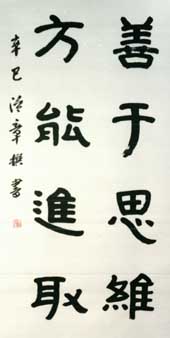 善于思維
方能進取
辛巳 范章撰書